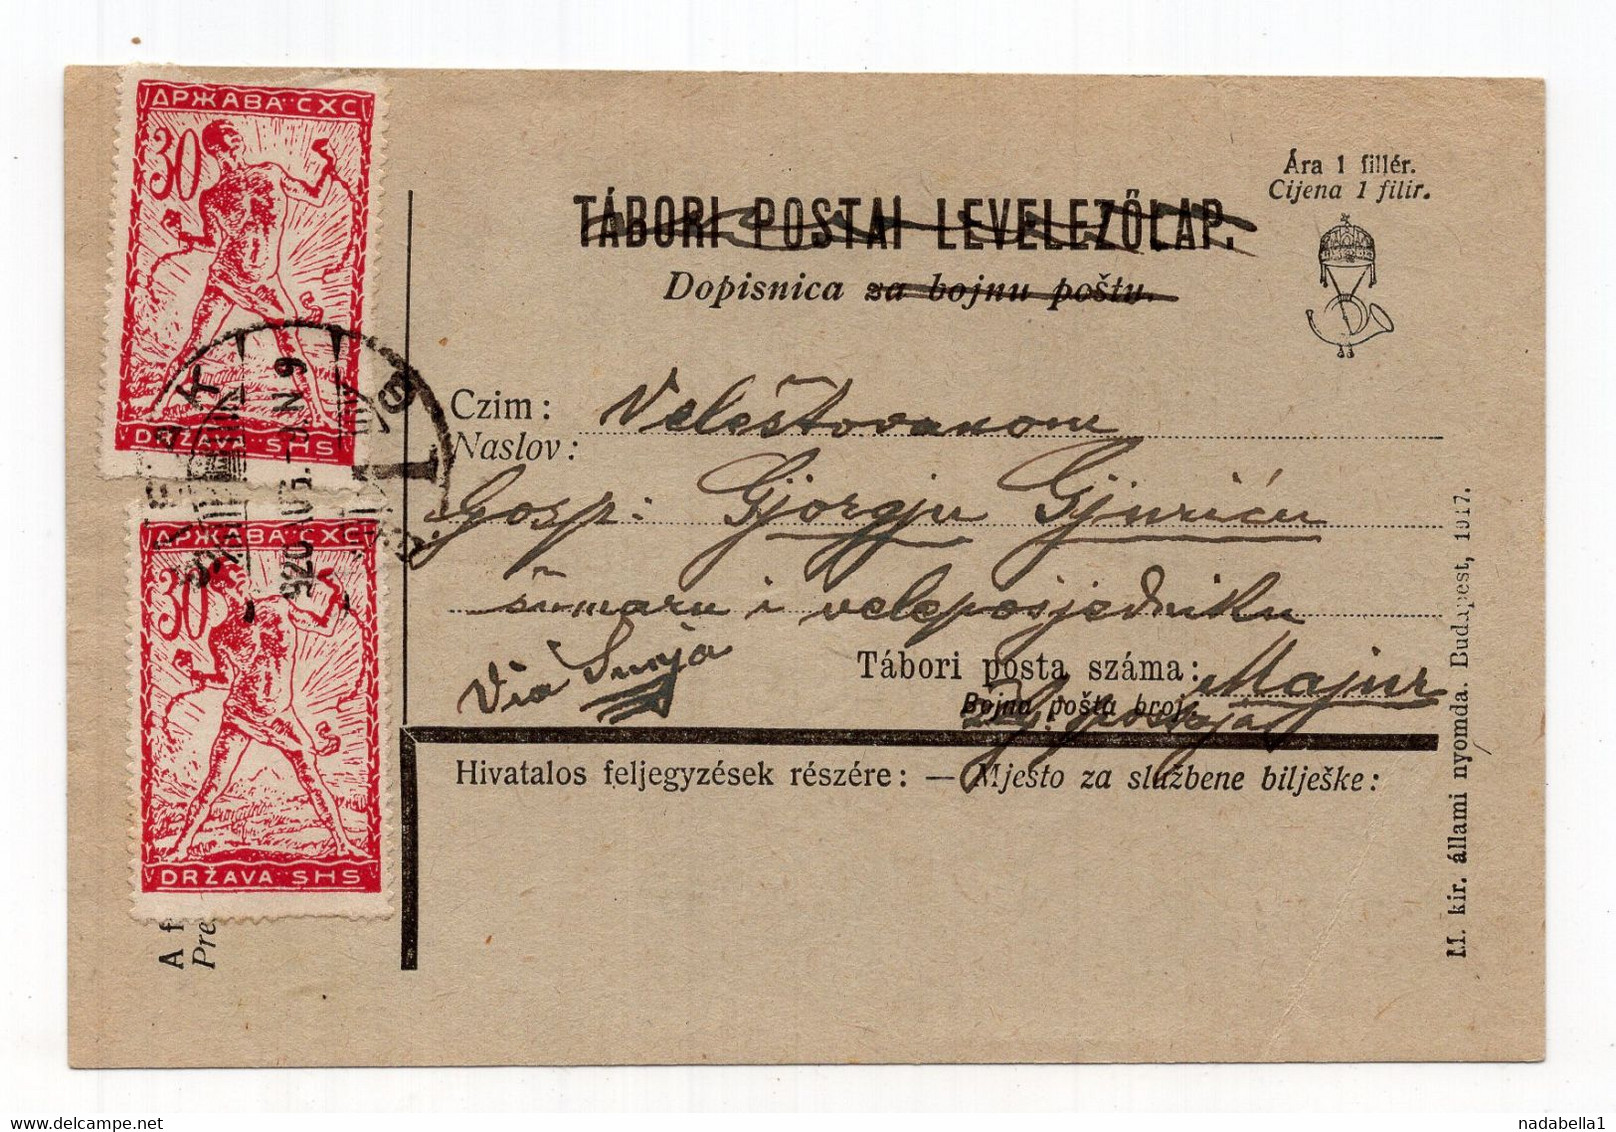 ДРЖАВА СХС
30
DRŽAVA SHS
ДРЖАВА СХС
30
DRŽAVA SHS
SISAK
920 AUG. 9
Ára 1 fillér.
Cijena 1 filir.
TÁBORI POSTAI LEVELEZŐLAP.
Dopisnica za bojnu poštu.
Czim: Veleštovanom
Naslov:
Gosp: Gjorgju Gjuriću
šumaru i veleposjedniku
Via Sunja
Tábori posta száma: Majur
Bojna pošta broj:
Hivatalos feljegyzések részére: — Mjesto za službene bilješke:
A f
Pre
M. kir. állami nyomda. Budapest, 1917.
delcampe.net
nadabella1